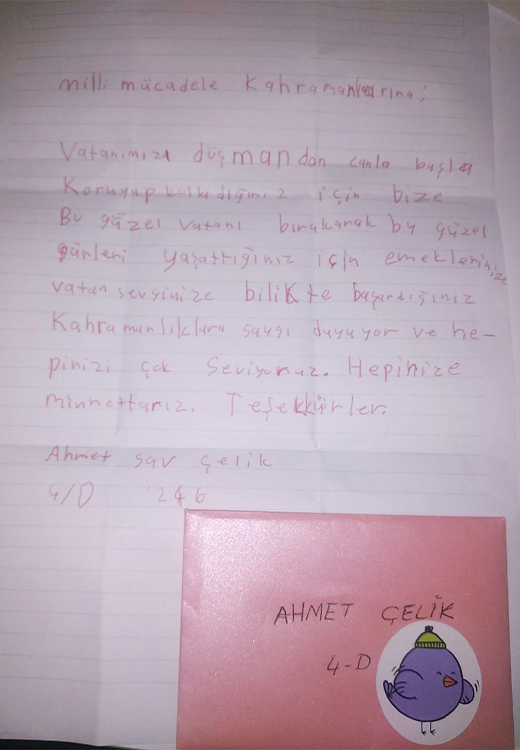 milli mücadele Kahramanlarına:
Vatanımızı düşmandan canla başla
Koruyup kolladığınız için bize
Bu güzel vatanı bırakarak bu güzel
günleri yaşattığınız için emeklerinize
vatan sevginize bilikte başardığınız
Kahramanlıklara saygı duyuyor ve he-
pinizi çok Seviyoruz. Hepinize
minnettarız. Teşekkürler.
Ahmet sav çelik
4/D 246
AHMET ÇELİK
4-D